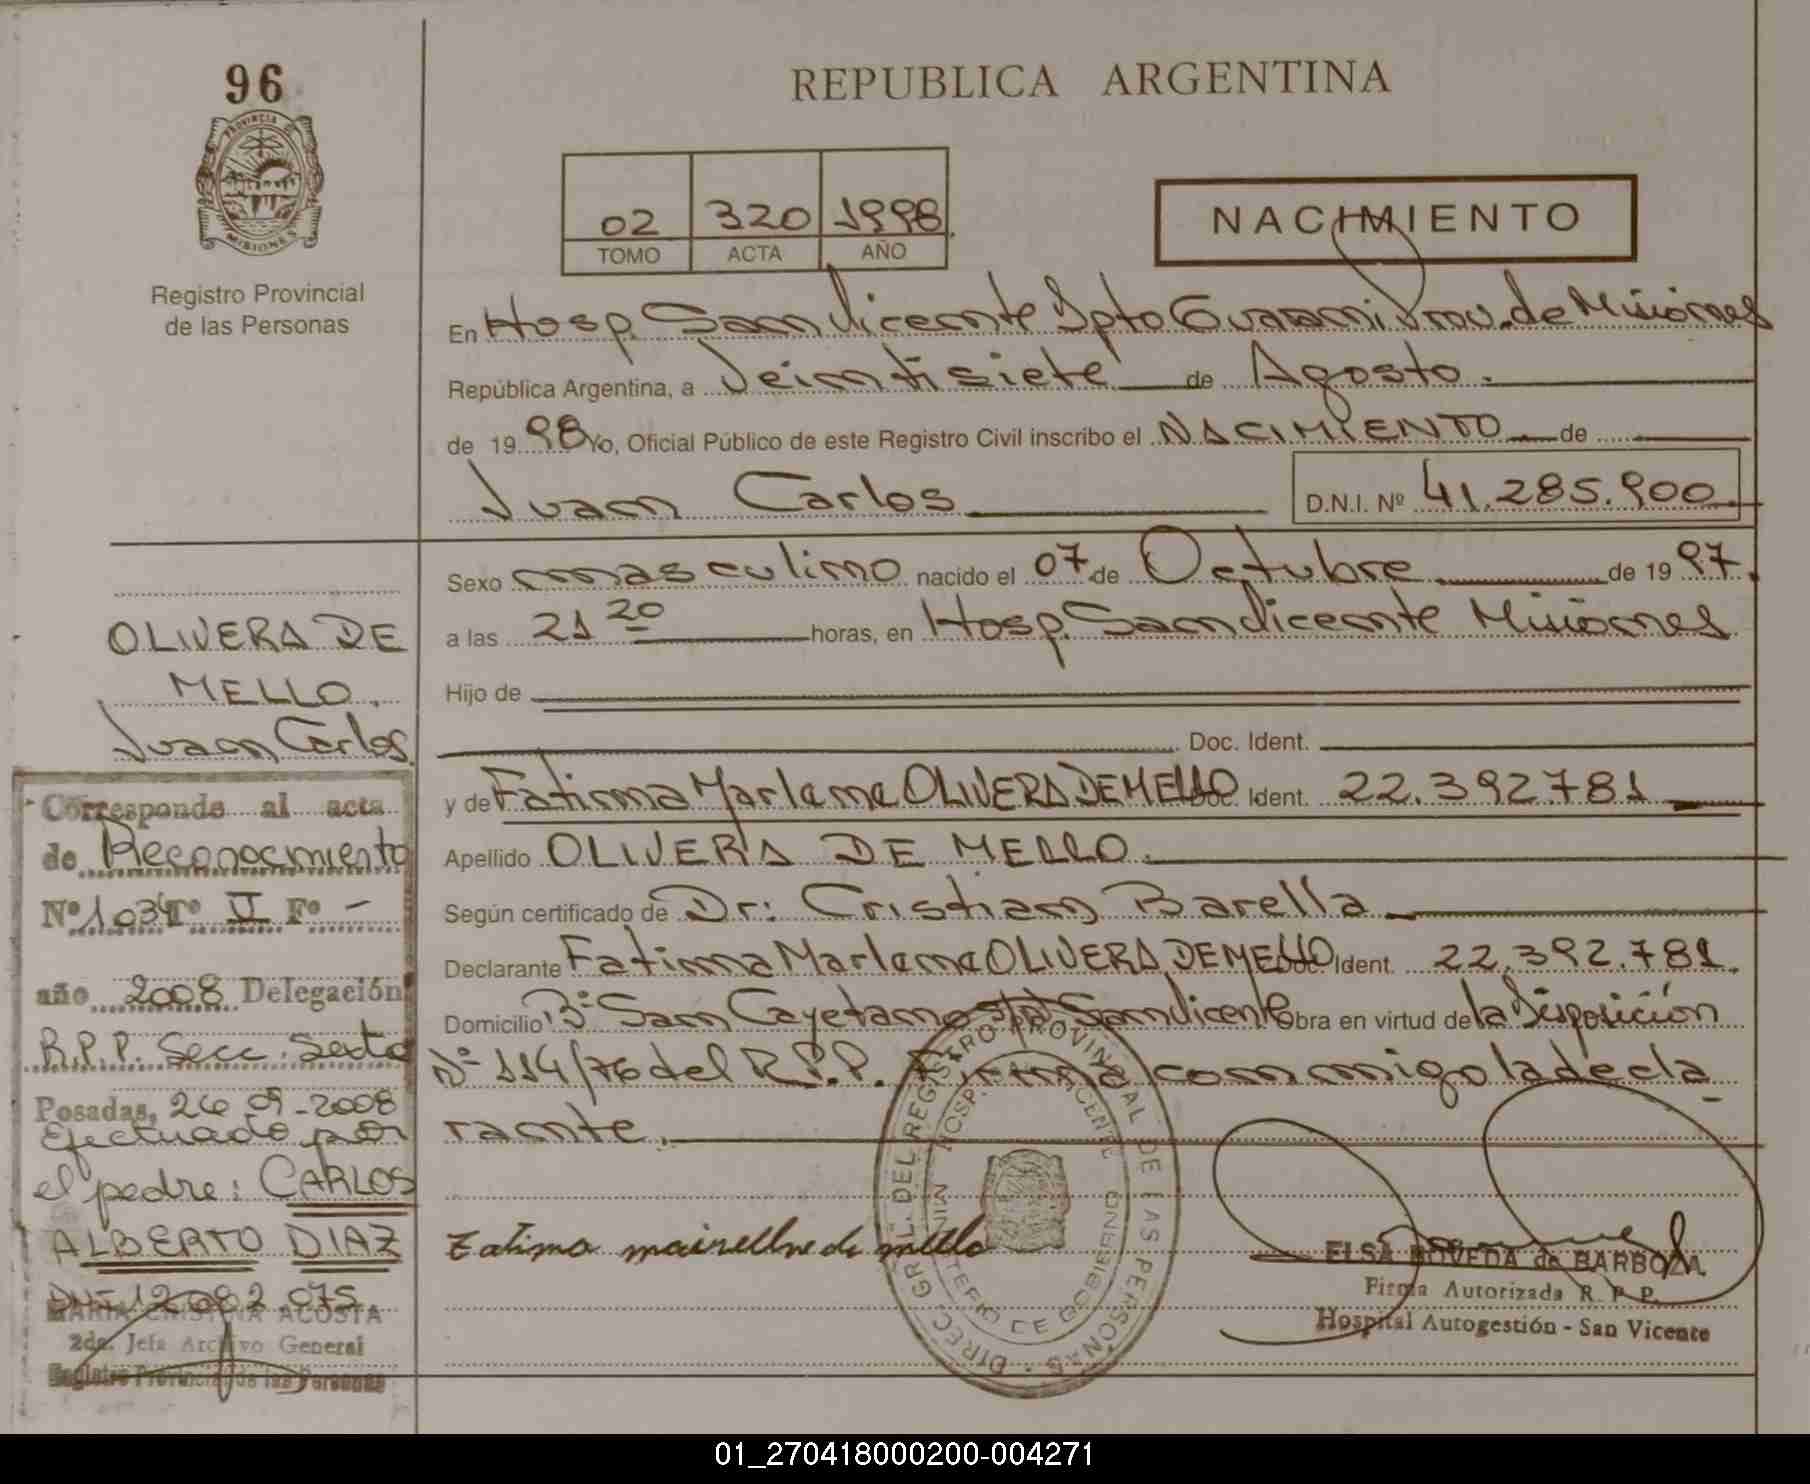 96
PROVINCIA DE
MISIONES
Registro Provincial
de las Personas
REPUBLICA ARGENTINA
02 320 1998.
TOMO ACTA AÑO
NACIMIENTO
En Hosp. San Vicente Dpto Guarani Prov. de Misiones
República Argentina, a Veintisiete de Agosto.
de 1998 Yo, Oficial Público de este Registro Civil inscribo el NACIMIENTO de
Juan Carlos D.N.I. Nº 41.285.900
Sexo masculino nacido el 07 de Octubre de 1997.
a las 21 20 horas, en Hosp. San Vicente Misiones
Hijo de
Doc. Ident.
y de Fatima Marlene OLIVERA DE MELLO Doc. Ident. 22.392.781
Apellido OLIVERA DE MELLO.
Según certificado de Dr: Cristian Barella
Declarante Fatima Marlene OLIVERA DE MELLO Doc. Ident. 22.392.781.
Domicilio Bº San Cayetano San Vicente Obra en virtud de la Disposición
Nº 114/76 del R.P.P. Firma conmigo la decla
rante.
OLIVERA DE
MELLO.
Juan Carlos
Corresponde al acta
de Reconocimiento
Nº 1034 Tº VI Fº -
año 2008 Delegación
R.P.P. Secc. Sexta
Posadas, 26-09-2008
Efectuado por
el padre: CARLOS
ALBERTO DIAZ
DNI 12.082.075.
MARIA CRISTINA ACOSTA
2da. Jefa Archivo General
Registro Provincial de las Personas
DIREC. GRAL. DEL REGISTRO PROVINCIAL DE LAS PERSONAS
HOSP. SAN VICENTE
MINISTERIO DE GOBIERNO
Fatima de mello
ELSA BOVEDA de BARBOZA
Firma Autorizada R. P. P.
Hospital Autogestión - San Vicente
01_270418000200-004271